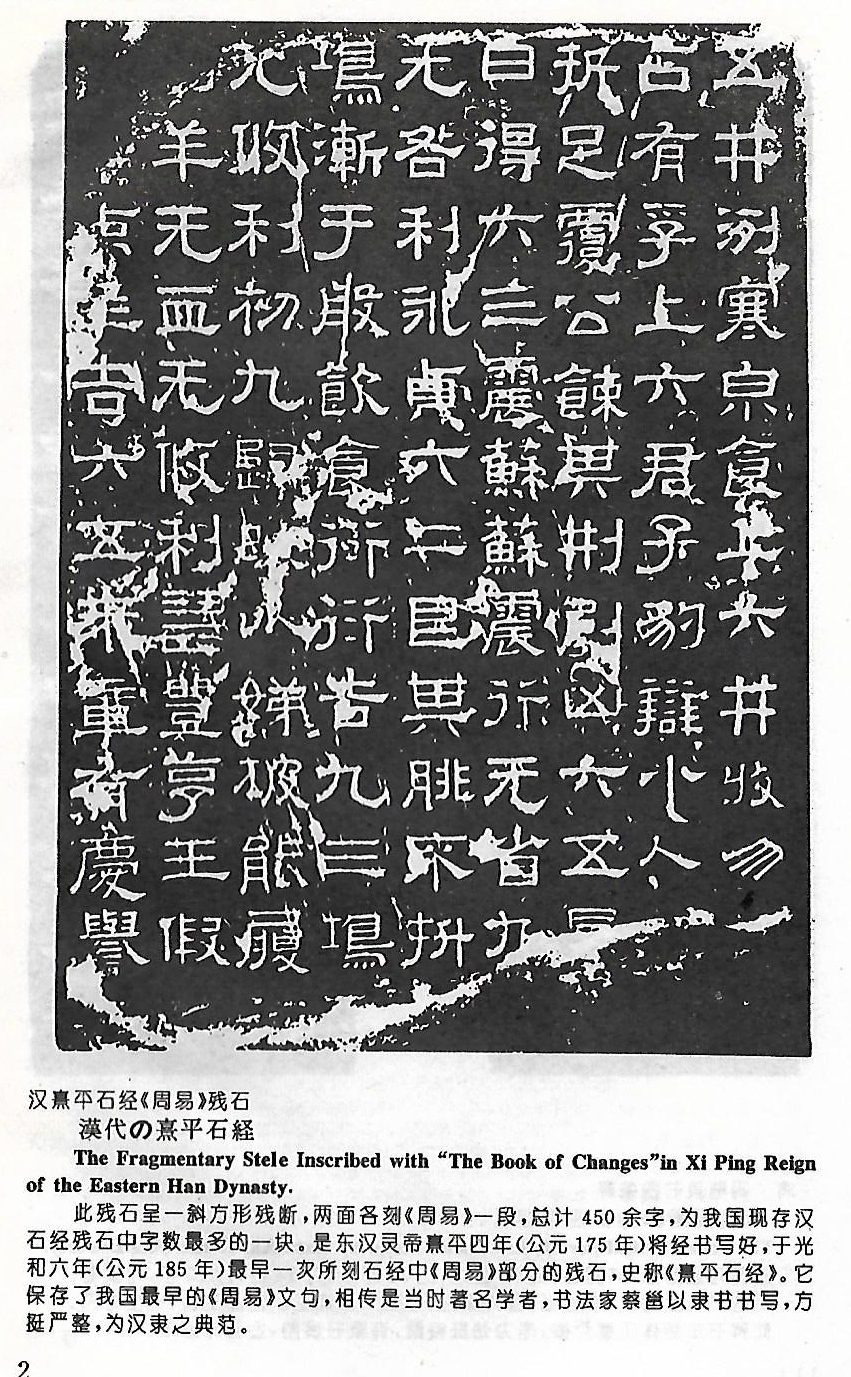 五井冽寒泉食上六井收勿
占有孚上六君子豹辯小人
折足覆公餗其刑剭凶六五
日得六三震蘇蘇震行无省九
无咎利永貞六二艮其腓不抍
鴻漸于般飲食衎衎吉九三鴻
无攸利初九歸妹以娣跛能履
羊无血无攸利豐亨王假
吉六五來章有慶譽
汉熹平石经《周易》残石
漢代の熹平石経
The Fragmentary Stele Inscribed with “The Book of Changes”in Xi Ping Reign
of the Eastern Han Dynasty.
此残石呈一斜方形残断，两面各刻《周易》一段，总计 450 余字，为我国现存汉
石经残石中字数最多的一块。是东汉灵帝熹平四年(公元 175 年)将经书写好，于光
和六年(公元 185 年)最早一次所刻石经中《周易》部分的残石，史称《熹平石经》。它
保存了我国最早的《周易》文句，相传是当时著名学者，书法家蔡邕以隶书书写，方
挺严整，为汉隶之典范。
2